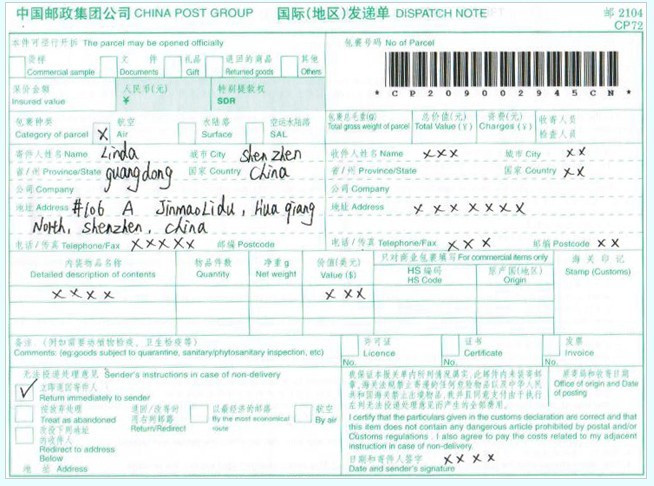 中国邮政集团公司 CHINA POST GROUP 国际(地区)发递单 DISPATCH NOTE 邮 2104
CP72
本件可径行开拆 The parcel may be opened officially
货样 Commercial sample
文件 Documents
礼品 Gift
退回的商品 Returned goods
其他 Others
包裹号码 No of Parcel
* C P 2 0 9 0 0 2 9 4 5 C N *
保价金额 Insured value
人民币(元) ¥
特别提款权 SDR
包裹种类 Category of parcel
X 航空 Air
水陆路 Surface
空运水陆路 SAL
包裹总毛重 Total gross weight of parcel
总价值(元) Total Value (¥)
资费(元) Charges (¥)
收寄人员
检查人员
寄件人姓名 Name Linda 城市 City Shenzhen
省/州 Province/State guangdong 国家 Country China
公司 Company
地址 Address #606 A JinmaoLidu, Hua qiang
North, Shenzhen, China
电话/传真 Telephone/Fax XXXXX 邮编 Postcode
收件人姓名 Name XXX 城市 City XX
省/州 Province/State 国家 Country XX
公司 Company
地址 Address XXXXXXX
电话/传真 Telephone/Fax XXX 邮编 Postcode XX
内装物品名称 Detailed description of contents
物品件数 Quantity
净重 g Net weight
价值(美元) Value ($)
只对商业包裹填写 For commercial items only
HS 编码 HS Code
原产国(地区) Origin
海关印 Stamp (Customs)
XXXX XXX
备注:(例如需要动植物检疫、卫生检疫等)
Comments: (eg:goods subject to quarantine, sanitary/phytosanitary inspection, etc)
许可证 Licence
No.
证书 Certificate
No.
发票 Invoice
No.
无法投递处理意见 Sender's instructions in case of non-delivery
✓ 立即退回寄件人
Return immediately to sender
按放弃处理
Treat as abandoned
退回/改寄的
Return/Redirect
以最经济的邮路
By the most economical route
航空
By air
改投下列地址
的收件人
Redirect to address
Below
地址 Address
原寄局和收寄日期
Office of origin and Date of posting
I certify that the particulars given in the customs declaration are correct and that
this item does not contain any dangerous article prohibited by postal and/or
Customs regulations . I also agree to pay the costs related to my adjacent
instruction in case of non-delivery.
日期和寄件人签字 XXXX
Date and sender's signature